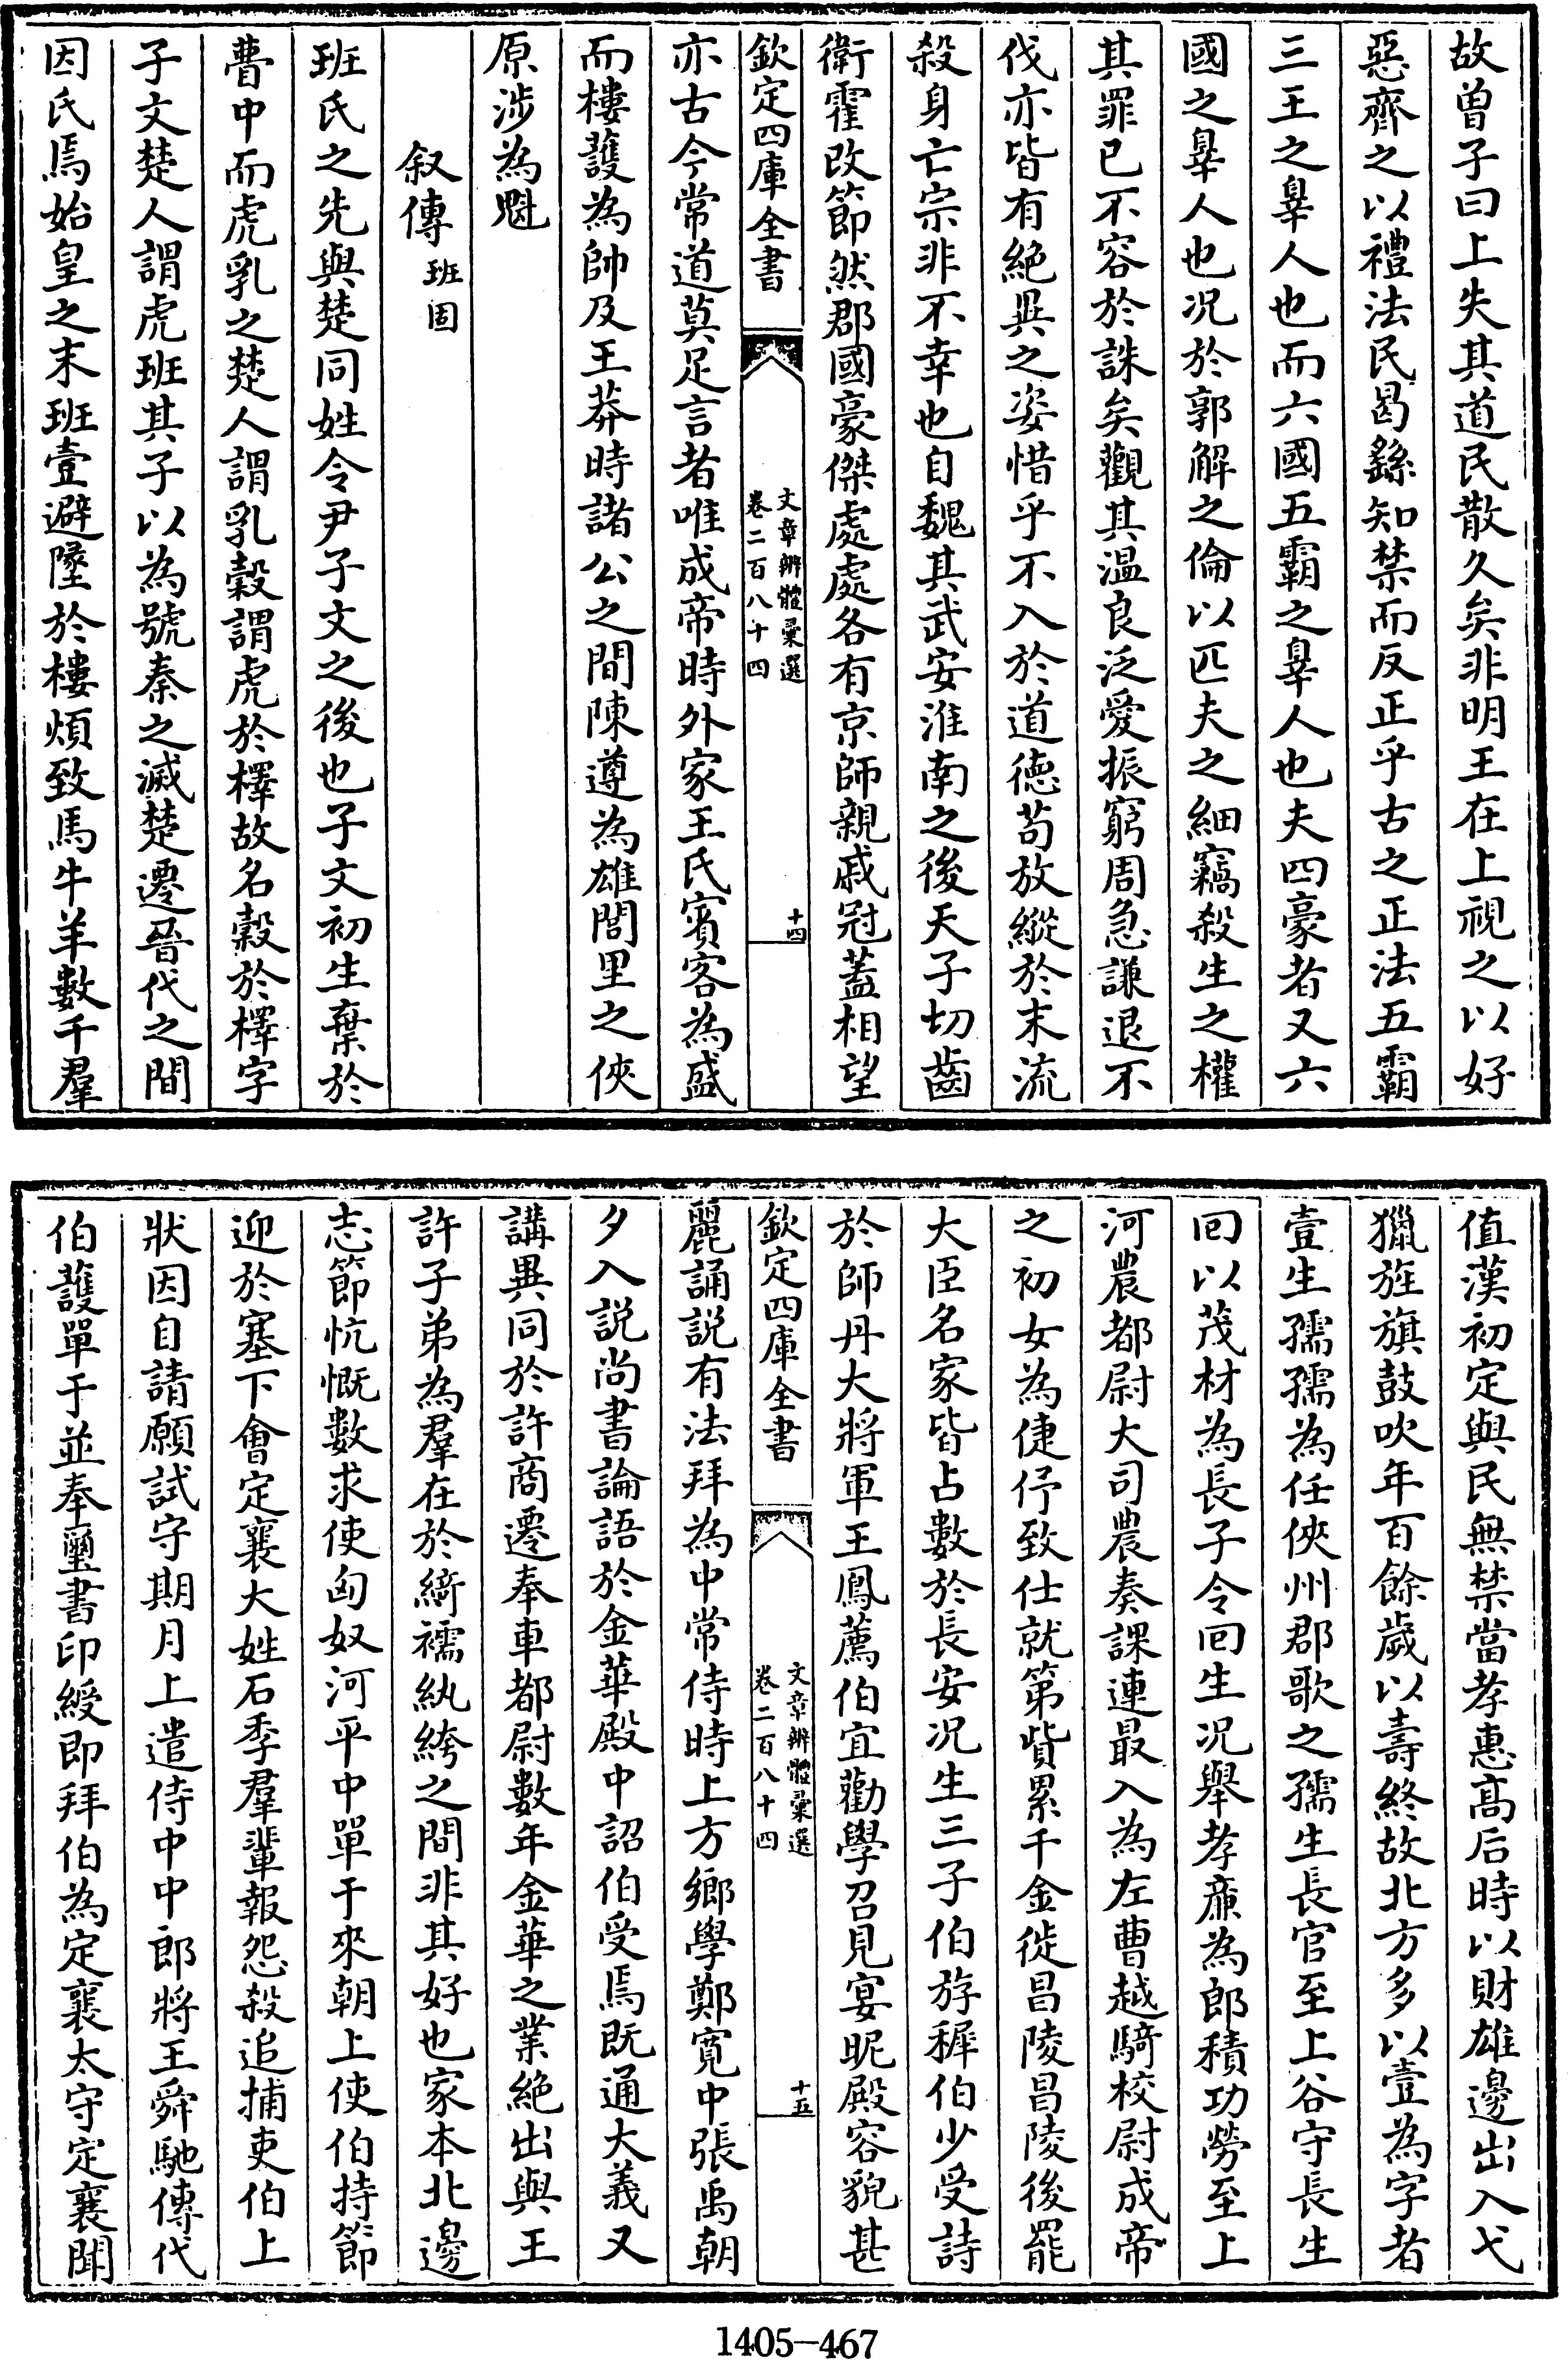 故曾子曰上失其道民散久矣非明王在上視之以好
惡齊之以禮法民曷繇知禁而反正乎古之正法五霸
三王之辠人也而六國五霸之辠人也夫四豪者又六
國之辠人也况於郭解之倫以匹夫之細竊殺生之權
其罪已不容於誅矣觀其温良泛愛振窮周急謙退不
伐亦皆有絶異之姿惜乎不入於道徳茍放縱於末流
殺身亡宗非不幸也自魏其武安淮南之後天子切齒
衛霍改節然郡國豪傑處處各有京師親戚冠蓋相望
欽定四庫全書
文章辨體彚選
卷二百八十四
十四
亦古今常道莫足言者唯成帝時外家王氏賓客為盛
而樓護為帥及王莽時諸公之間陳遵為雄閭里之俠
原涉為魁
叙傳 班固
班氏之先與楚同姓令尹子文之後也子文初生棄於
瞢中而虎乳之楚人謂乳穀謂虎於檡故名穀於檡字
子文楚人謂虎班其子以為號秦之滅楚遷晉代之間
因氏焉始皇之末班壹避墬於樓煩致馬牛羊數千羣
值漢初定與民無禁當孝惠高后時以財雄邊出入弋
獵旌旗鼓吹年百餘歲以壽終故北方多以壹為字者
壹生孺孺為任俠州郡歌之孺生長官至上谷守長生
回以茂材為長子令回生况舉孝亷為郎積功勞至上
河農都尉大司農奏課連最入為左曹越騎校尉成帝
之初女為倢伃致仕就第貲累千金徙昌陵昌陵後罷
大臣名家皆占數於長安况生三子伯斿穉伯少受詩
於師丹大將軍王鳳薦伯宜勸學召見宴昵殿容貌甚
欽定四庫全書
文章辨體彚選
卷二百八十四
十五
麗誦説有法拜為中常侍時上方鄉學鄭寛中張禹朝
夕入説尚書論語於金華殿中詔伯受焉既通大義又
講異同於許商遷奉車都尉數年金華之業絶出與王
許子弟為羣在於綺襦紈絝之間非其好也家本北邊
志節忼慨數求使匈奴河平中單于來朝上使伯持節
迎於塞下會定襄大姓石季羣輩報怨殺追捕吏伯上
狀因自請願試守期月上遣侍中中郎將王舜馳傳代
伯護單于並奉璽書印綬即拜伯為定襄太守定襄聞
1405-467